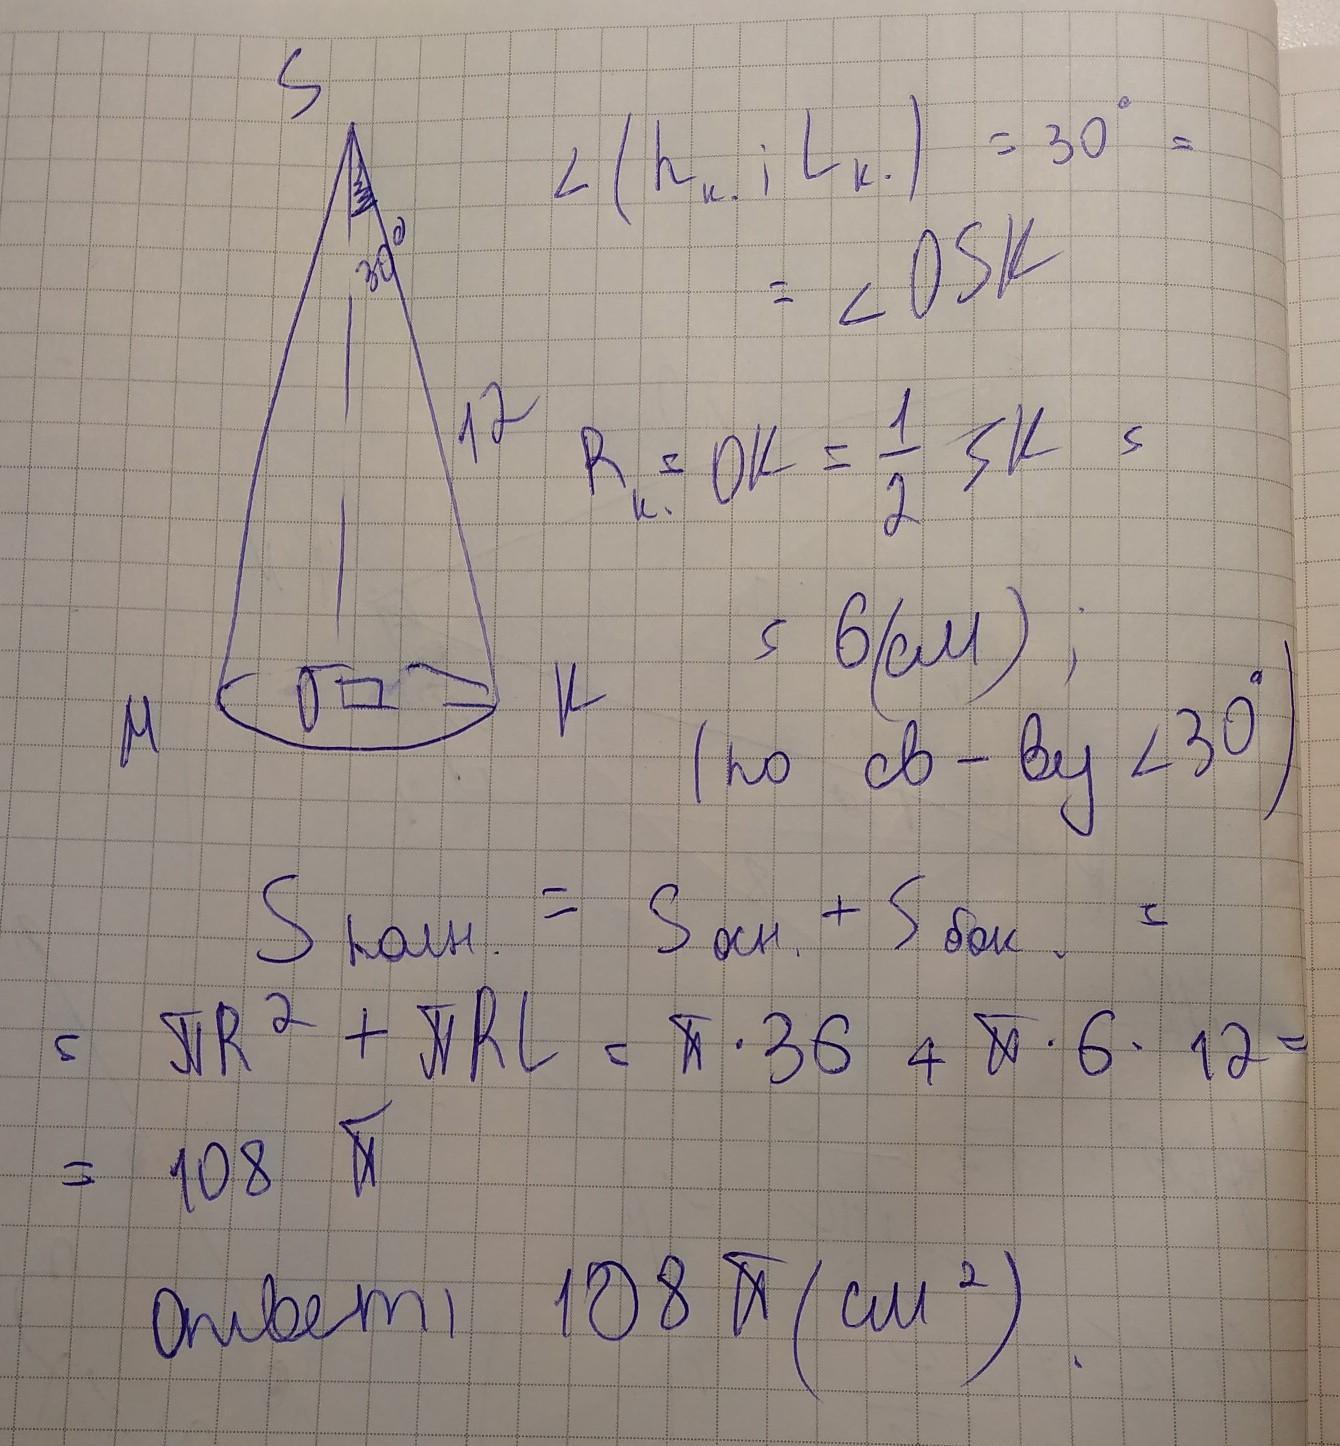 S
∠(hк. ; Lк.) = 30° =
30°
= ∠OSK
12
Rк. = OK = 1/2 SK =
= 6(см) ;
M O K
(по св-ву ∠30°)
Sполн. = Sосн. + Sбок. =
= πR² + πRL = π·36 + π·6·12 =
= 108 π
Ответ: 108 π (см²).